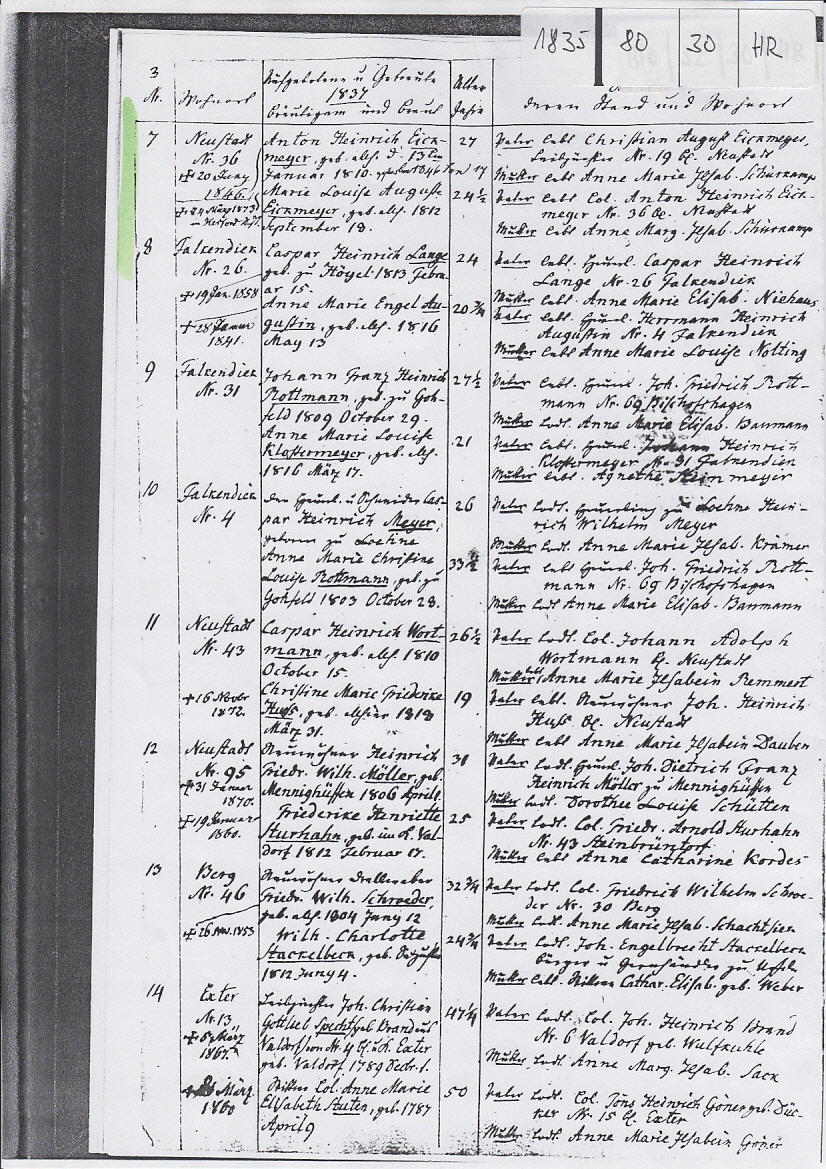 1835 80 30 HR
3
Nr.
Wohnort
Aufgebotene u Getraute
1837
Bräutigam und Braut
Alter
Jahre
deren Stand und Wohnort
7
Neustadt
Nr. 36
+ 20 Juny
1846
+ 24 März 1873
in Herford
Anton Heinrich Eick-
meyer, geb. alh. d. 13ten
Januar 1810.
Marie Louise August
Eickmeyer, geb. alh. 1812
September 18.
27
24 1/2
Vater lebt Christian August Eickmeyer,
Leibzüchter Nr. 19 Bs. Neustadt
Mutter lebt Anne Marie Ilsab. Schürkamp
Vater lebt Col. Anton Heinrich Eick-
meyer Nr. 36 Bs. Neustadt
Mutter lebt Anne Marg. Ilsab. Schürkamp
8
Falkendiek
Nr. 26.
+ 19 Jan. 1858
+ 28 Januar
1841.
Caspar Heinrich Lange
geb. zu 1813 Febru-
ar 15.
Anne Marie Engel Au-
gustin, geb. alh. 1816
May 13
24
20 3/4
Vater lebt. Heuerl. Caspar Heinrich
Lange Nr. 26 Falkendiek
Mutter lebt Anne Marie Elisab. Niehaus
Vater lebt. Heuerl. Herrmann Heinrich
Augustin Nr. 4 Falkendiek
Mutter lebt Anne Marie Louise Nolting
9
Falkendiek
Nr. 31
Johann Franz Heinrich
Rottmann, geb. zu Goh-
feld 1809 October 29.
Anne Marie Louise
Klostermeyer, geb. alh.
1816 März 17.
27 1/2
21
Vater lebt. Heuerl. Joh. Friedrich Rott-
mann Nr. 69 Bischofshagen
Mutter lodt. Anne Marie Elisab. Baumann
Vater lebt. Heuerl. Johann Heinrich
Klostermeyer Nr. 31 Falkendiek
Mutter lebt. Agnethe Steinmeyer
10
Falkendiek
Nr. 4
Der Heuerl. u Schneider Cas-
par Heinrich Meyer,
geboren zu Loehne
Anne Marie Christine
Louise Rottmann, geb. zu
Gohfeld 1803 October 28.
26
33
Vater todt. Heuerling zu Loehne Hein-
rich Wilhelm Meyer
Mutter todt. Anne Marie Ilsab. Krämer
Vater lebt Heuerl. Joh. Friedrich Rott-
mann Nr. 69 Bischofshagen
Mutter todt Anne Marie Elisab. Baumann
11
Neustadt
Nr. 43
+ 16 Novbr
1872.
Caspar Heinrich Wort-
mann, geb. alh. 1810
October 15.
Christine Marie Friederike
Huss, geb. alhier 1818
März 31.
26 1/2
19
Vater todt. Col. Johann Adolph
Wortmann Bs. Neustadt
Mutter lebt Anne Marie Ilsabein Remmert
Vater lebt. Neuwohner Joh. Heinrich
Huss Bs. Neustadt
Mutter lebt Anne Marie Ilsabein Dauben
12
Neustadt
Nr. 95
+ 31 Januar
1870.
+ 19 Januar
1860.
Neuwohner Heinrich
Friedr. Wilh. Möller, geb.
Mennighüffen 1806 April
Friederike Henriette
Sturhahn, geb. im K. Val-
dorf 1812 Februar 17.
31
25
Vater todt. Heuerl. Joh. Dietrich Franz
Heinrich Möller zu Mennighüffen
Mutter todt. Dorothee Louise Schütten
Vater todt. Col. Friedr. Arnold Sturhahn
Nr. 43 Steinbründorf
Mutter lebt Anne Catharine Kordes
13
Berg
Nr. 46
+ 26 Nov. 1853
Neuwohner
Friedr. Wilh. Schroeder,
geb. alh. 1804 Juny 12
Wilh. Charlotte
Stackelbeck, geb.
1812 Juny 4.
32 3/4
24 3/4
Vater todt. Col. Friedrich Wilhelm Schroe-
der Nr. 30 Berg
Mutter todt. Anne Marie Ilsab. Schachtsiek
Vater todt. Joh. Engelbrecht Stackelbeck
Bürger u zu
Mutter lebt. Cathar. Elisab. geb. Weber
14
Exter
Nr. 13
+ 6 März
1867.
März
1860
Leibzüchter Joh. Christian
Gottlieb Specht geb Brand aus
Valdorf von Nr. 4 Exter
geb. Valdorf, 1789 Decbr. 1.
Wittwe Col. Anne Marie
Elisabeth Stuten, geb. 1787
April 9
47 1/4
50
Vater todt. Col. Joh. Heinrich Brand
Nr. 6 Valdorf geb. Wulfkuhle
Mutter todt Anne Marg. Ilsab. Sack
Vater todt. Col. Töns Heinrich Göner geb. Düc-
ker Nr. 15 Bs. Exter
Mutter todt. Anne Marie Ilsabein Göner